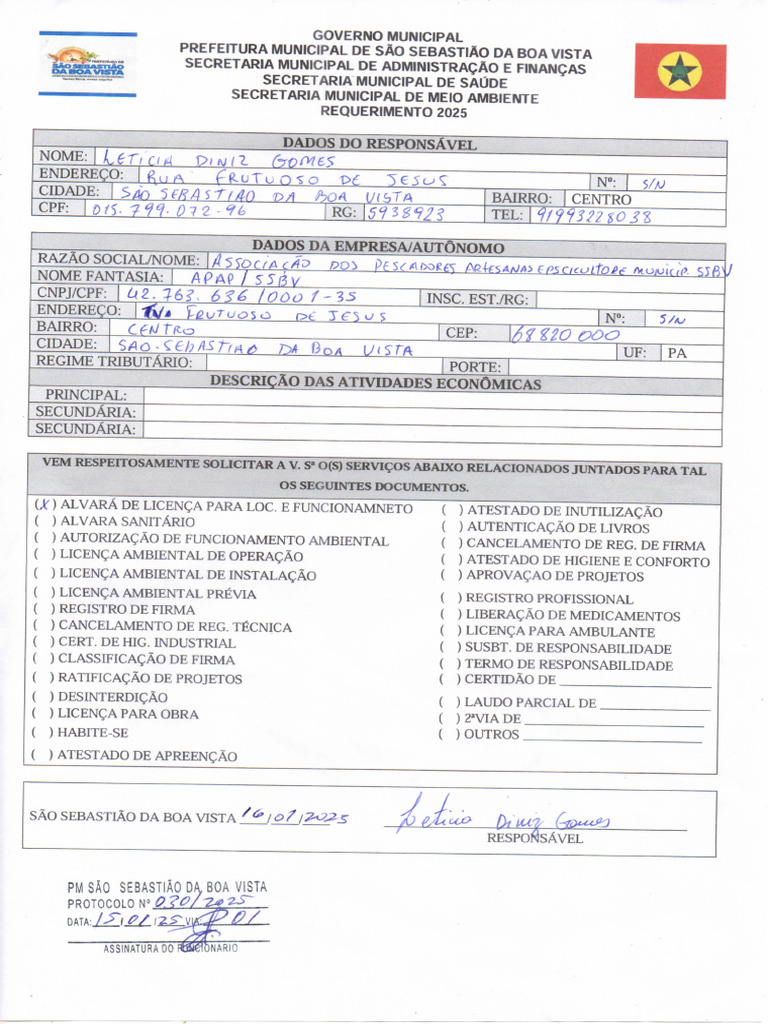 PREFEITURA DE
SÃO SEBASTIÃO
DA BOA VISTA
GOVERNO MUNICIPAL
PREFEITURA MUNICIPAL DE SÃO SEBASTIÃO DA BOA VISTA
SECRETARIA MUNICIPAL DE ADMINISTRAÇÃO E FINANÇAS
SECRETARIA MUNICIPAL DE SAÚDE
SECRETARIA MUNICIPAL DE MEIO AMBIENTE
REQUERIMENTO 2025
DADOS DO RESPONSÁVEL
NOME: LETICIA DINIZ GOMES
ENDEREÇO: RUA FRUTUOSO DE JESUS Nº: S/N
CIDADE: SÃO SEBASTIAO DA BOA VISTA BAIRRO: CENTRO
CPF: 015.799.072-96 RG: 5938923 TEL: 91993228038
DADOS DA EMPRESA/AUTÔNOMO
RAZÃO SOCIAL/NOME: ASSOCIAÇÃO DOS PESCADORES ARTESANAS EPSCICULTORE MUNICIP. SSBV
NOME FANTASIA: APAP/SSBV
CNPJ/CPF: 42.763.636/0001-35 INSC. EST./RG:
ENDEREÇO: TV. FRUTUOSO DE JESUS Nº: S/N
BAIRRO: CENTRO CEP: 68820000
CIDADE: SAO-SEBASTIAO DA BOA VISTA UF: PA
REGIME TRIBUTÁRIO: PORTE:
DESCRIÇÃO DAS ATIVIDADES ECONÔMICAS
PRINCIPAL:
SECUNDÁRIA:
SECUNDÁRIA:
VEM RESPEITOSAMENTE SOLICITAR A V. Sª O(S) SERVIÇOS ABAIXO RELACIONADOS JUNTADOS PARA TAL
OS SEGUINTES DOCUMENTOS.
(X) ALVARÁ DE LICENÇA PARA LOC. E FUNCIONAMNETO
( ) ALVARA SANITÁRIO
( ) AUTORIZAÇÃO DE FUNCIONAMENTO AMBIENTAL
( ) LICENÇA AMBIENTAL DE OPERAÇÃO
( ) LICENÇA AMBIENTAL DE INSTALAÇÃO
( ) LICENÇA AMBIENTAL PRÉVIA
( ) REGISTRO DE FIRMA
( ) CANCELAMENTO DE REG. TÉCNICA
( ) CERT. DE HIG. INDUSTRIAL
( ) CLASSIFICAÇÃO DE FIRMA
( ) RATIFICAÇÃO DE PROJETOS
( ) DESINTERDIÇÃO
( ) LICENÇA PARA OBRA
( ) HABITE-SE
( ) ATESTADO DE APREENÇÃO
( ) ATESTADO DE INUTILIZAÇÃO
( ) AUTENTICAÇÃO DE LIVROS
( ) CANCELAMENTO DE REG. DE FIRMA
( ) ATESTADO DE HIGIENE E CONFORTO
( ) APROVAÇAO DE PROJETOS
( ) REGISTRO PROFISSIONAL
( ) LIBERAÇÃO DE MEDICAMENTOS
( ) LICENÇA PARA AMBULANTE
( ) SUSBT. DE RESPONSABILIDADE
( ) TERMO DE RESPONSABILIDADE
( ) CERTIDÃO DE
( ) LAUDO PARCIAL DE
( ) 2ªVIA DE
( ) OUTROS
SÃO SEBASTIÃO DA BOA VISTA 16/01/2025 Leticia Diniz Gomes
RESPONSÁVEL
PM SÃO SEBASTIÃO DA BOA VISTA
PROTOCOLO Nº 030/2025
DATA: 15/01/25 VIA: 01
ASSINATURA DO FUNCIONARIO